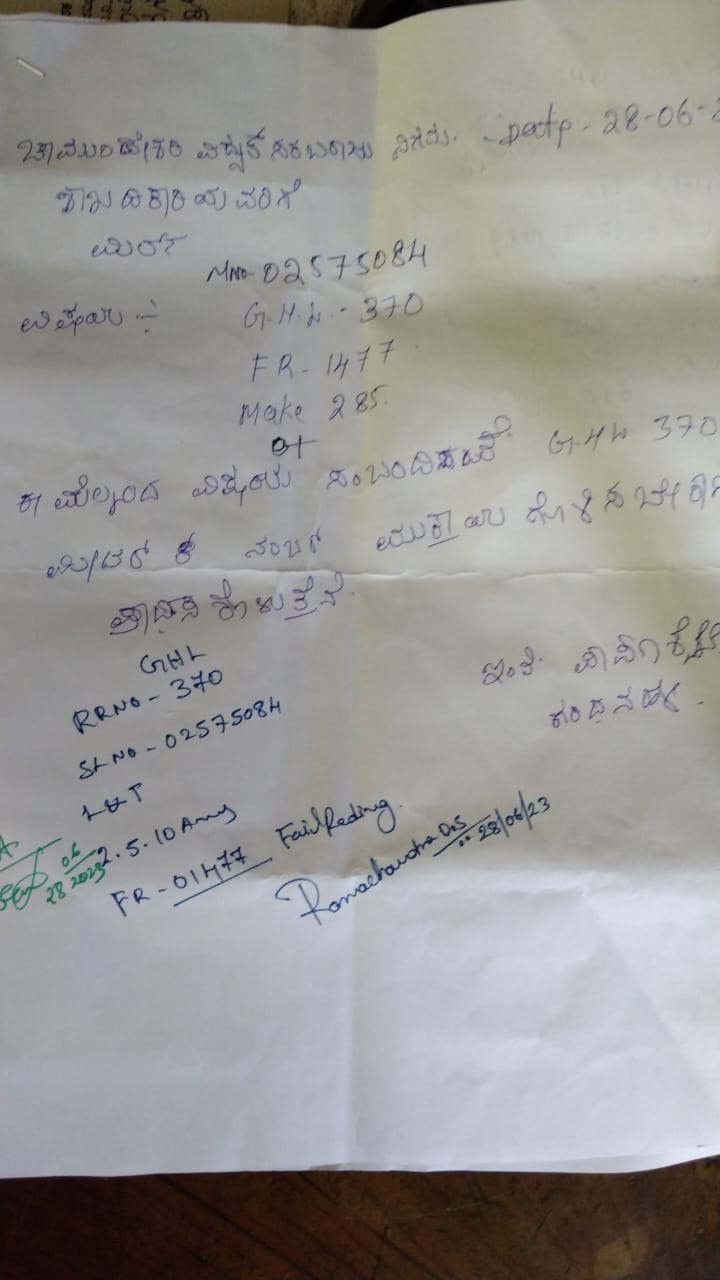 ಚಾಮುಂಡೇಶ್ವರಿ ವಿದ್ಯುತ್ ಸರಬರಾಜು ನಿಗಮ. - Date - 28-06-
ಶಾಖಾದಿಕಾರಿಯವರಿಗೆ
M No - 02575084
ವಿಷಯ :- G.H.L. - 370
FR - 1477
Make 285.
ಈ ಮೇಲ್ಕಂಡ ವಿಷಯ ಸಂಬಂದಿಸಿದಂತೆ G.H.L 370
ಮೀಟರ್ ನಂಬರ್ ಮುಕ್ತಾಯ ಗೊಳಿಸಬೇಕಾಗಿ
ಪ್ರಾರ್ಥಿಸಿ ಕೊಳುತ್ತೆನೆ.
ಇಂತಿ
GHL
RRNO - 370
SLNO - 02575084
L&T
2.5.10 Amy
FR - 01477 Fail Reding.
Ramachandra 28/06/23
28 06 2023